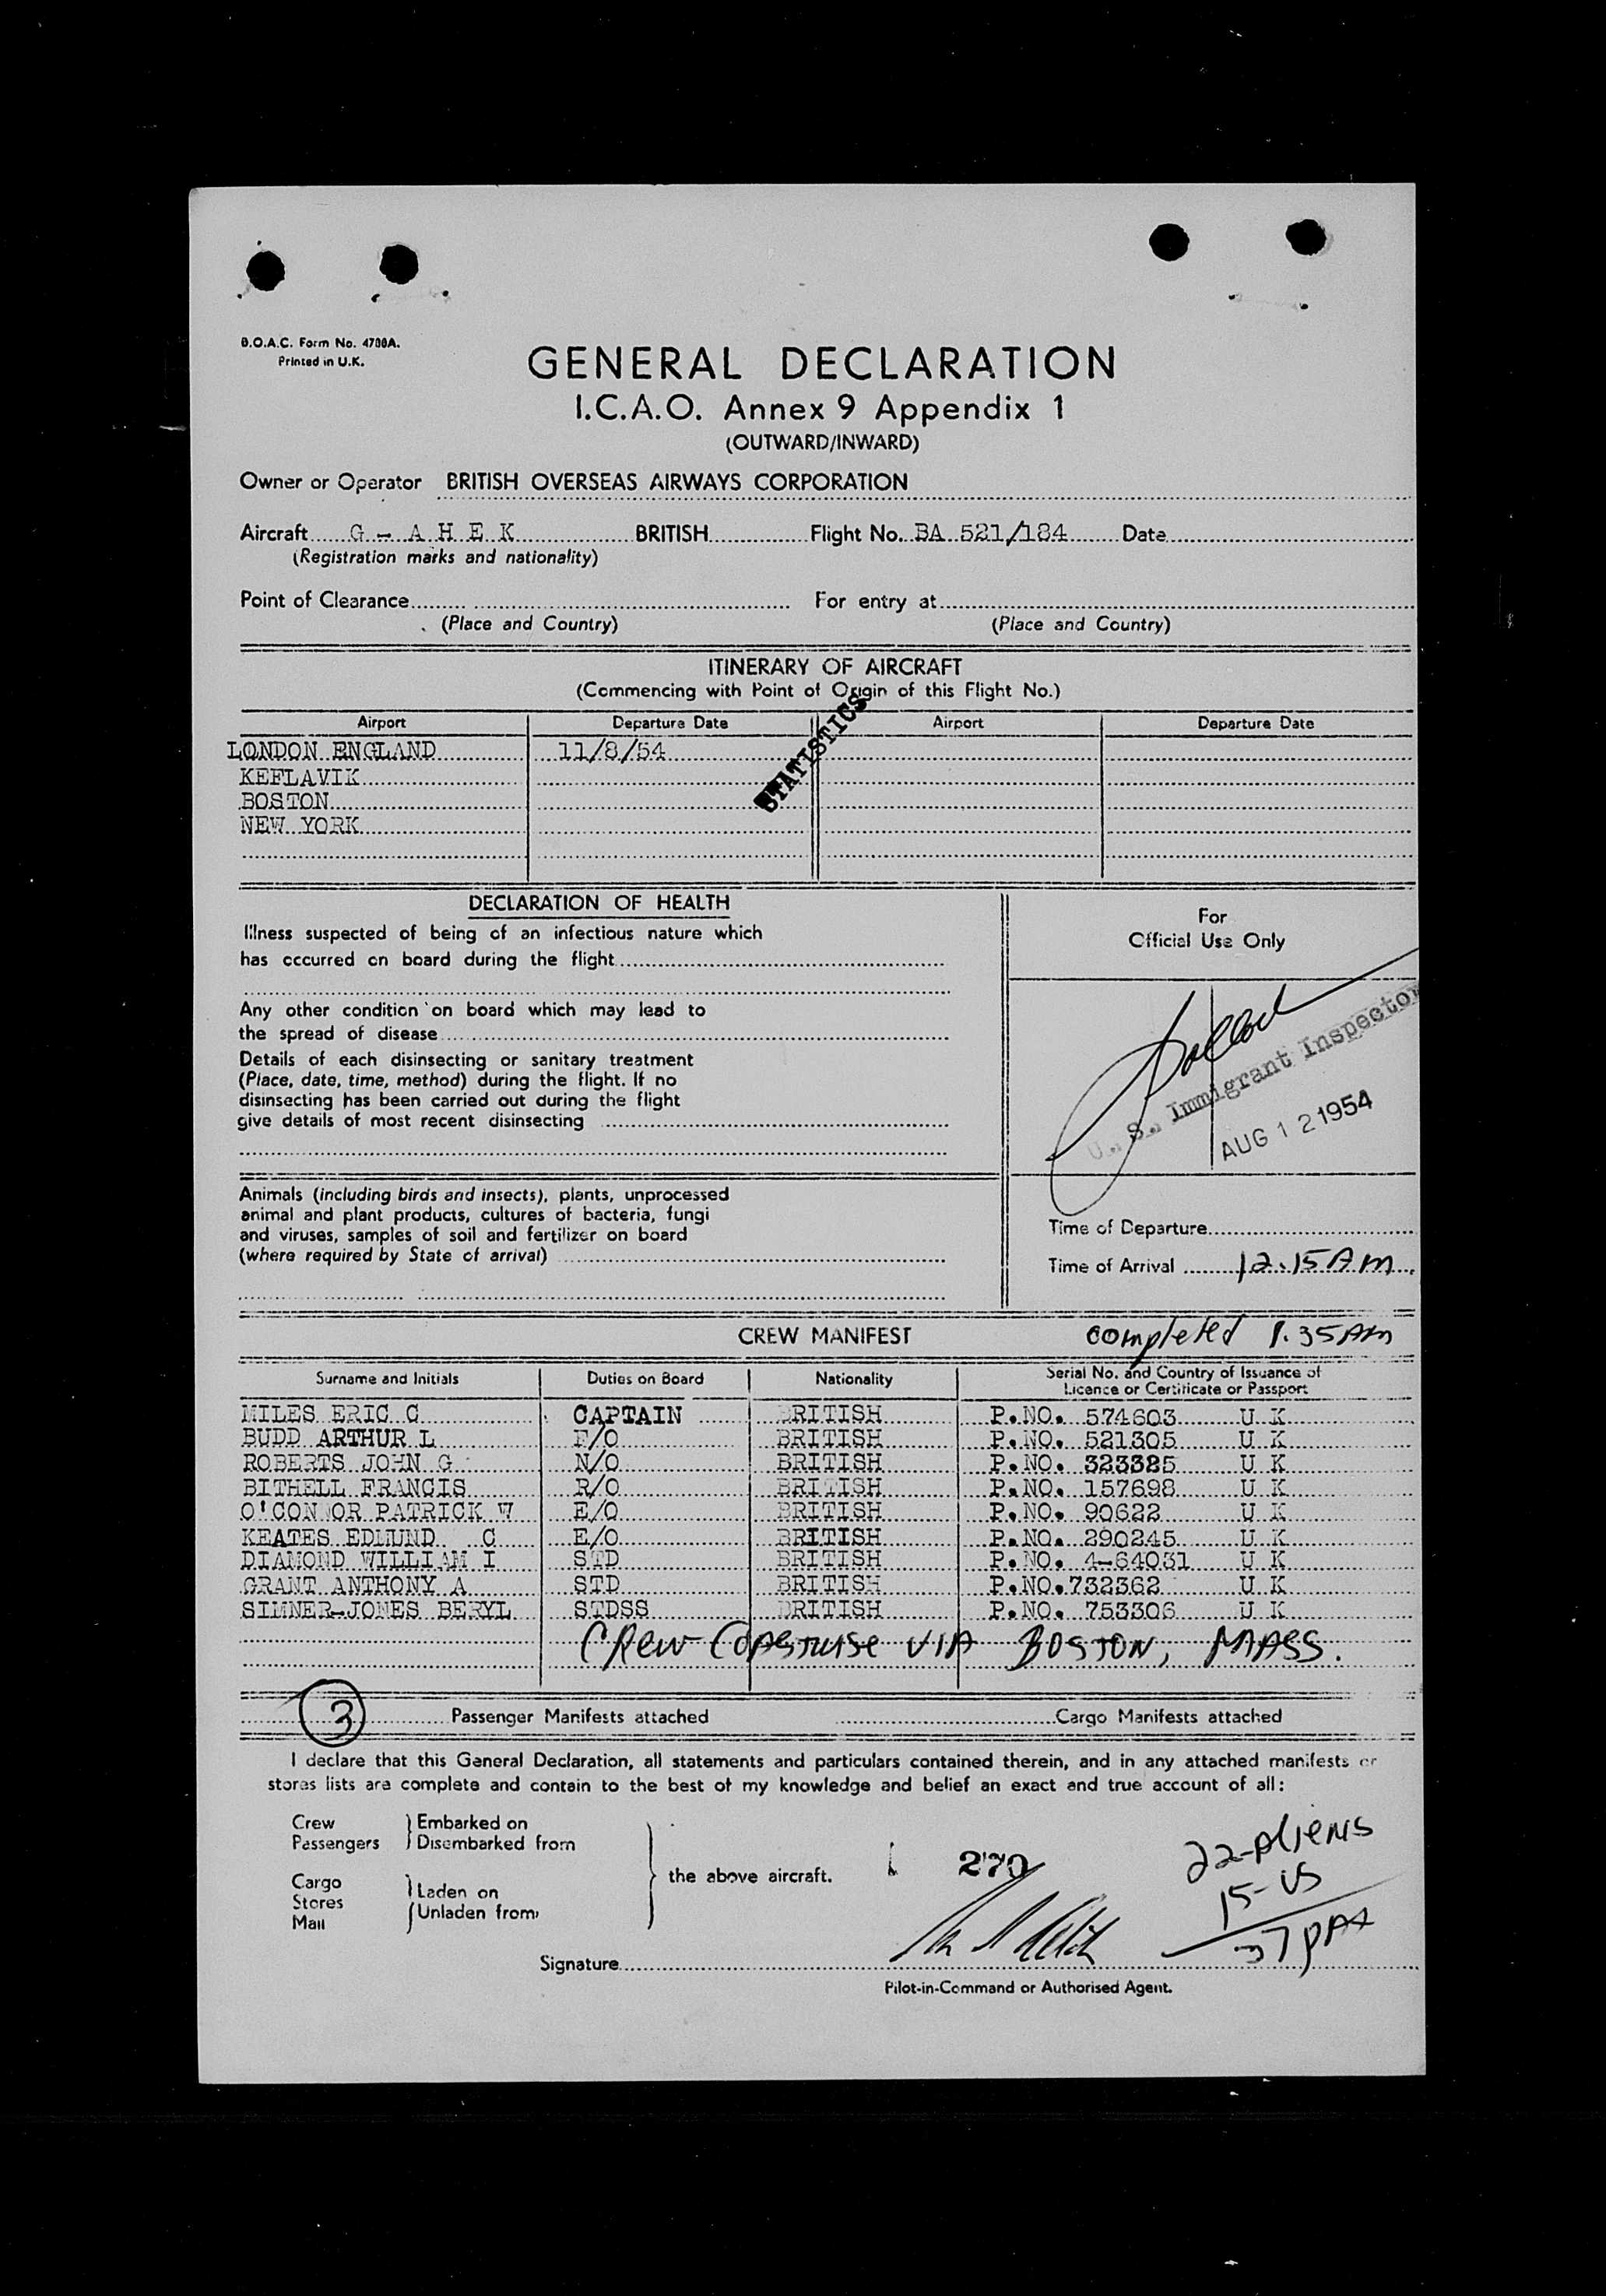 B.O.A.C. Form No. 4700A.
Printed in U.K.
GENERAL DECLARATION
I.C.A.O. Annex 9 Appendix 1
(OUTWARD/INWARD)
Owner or Operator BRITISH OVERSEAS AIRWAYS CORPORATION
Aircraft G - A H E K BRITISH Flight No. BA 521/184 Date
(Registration marks and nationality)
Point of Clearance For entry at
(Place and Country) (Place and Country)
ITINERARY OF AIRCRAFT
(Commencing with Point of Origin of this Flight No.)
STATISTICS
Airport Departure Date Airport Departure Date
LONDON ENGLAND 11/8/54
KEFLAVIK
BOSTON
NEW YORK
DECLARATION OF HEALTH
Illness suspected of being of an infectious nature which
has occurred on board during the flight
Any other condition on board which may lead to
the spread of disease
Details of each disinsecting or sanitary treatment
(Place, date, time, method) during the flight. If no
disinsecting has been carried out during the flight
give details of most recent disinsecting
Animals (including birds and insects), plants, unprocessed
animal and plant products, cultures of bacteria, fungi
and viruses, samples of soil and fertilizer on board
(where required by State of arrival)
For
Official Use Only
U. S. Immigrant Inspector
AUG 12 1954
Time of Departure
Time of Arrival 12.15 AM.
CREW MANIFEST completed 1.35 AM
Surname and Initials Duties on Board Nationality Serial No. and Country of Issuance of
Licence or Certificate or Passport
MILES ERIC C CAPTAIN BRITISH P.NO. 574603 U K
BUDD ARTHUR L F/O BRITISH P.NO. 521305 U K
ROBERTS JOHN G N/O BRITISH P.NO. 323385 U K
BITHELL FRANCIS R/O BRITISH P.NO. 157698 U K
O'CONNOR PATRICK W E/O BRITISH P.NO. 90622 U K
KEATES EDMUND C E/O BRITISH P.NO. 290245 U K
DIAMOND WILLIAM I STD BRITISH P.NO. 4-64031 U K
GRANT ANTHONY A STD BRITISH P.NO. 732362 U K
SIMNER-JONES BERYL STDSS BRITISH P.NO. 753306 U K
Crew Coastwise VIA BOSTON, MASS.
3 Passenger Manifests attached Cargo Manifests attached
I declare that this General Declaration, all statements and particulars contained therein, and in any attached manifests or
stores lists are complete and contain to the best of my knowledge and belief an exact and true account of all:
Crew Embarked on
Passengers Disembarked from
the above aircraft.
Cargo Laden on
Stores Unladen from
Mail
270
22-Aliens
15-US
37 PAX
Signature
Pilot-in-Command or Authorised Agent.